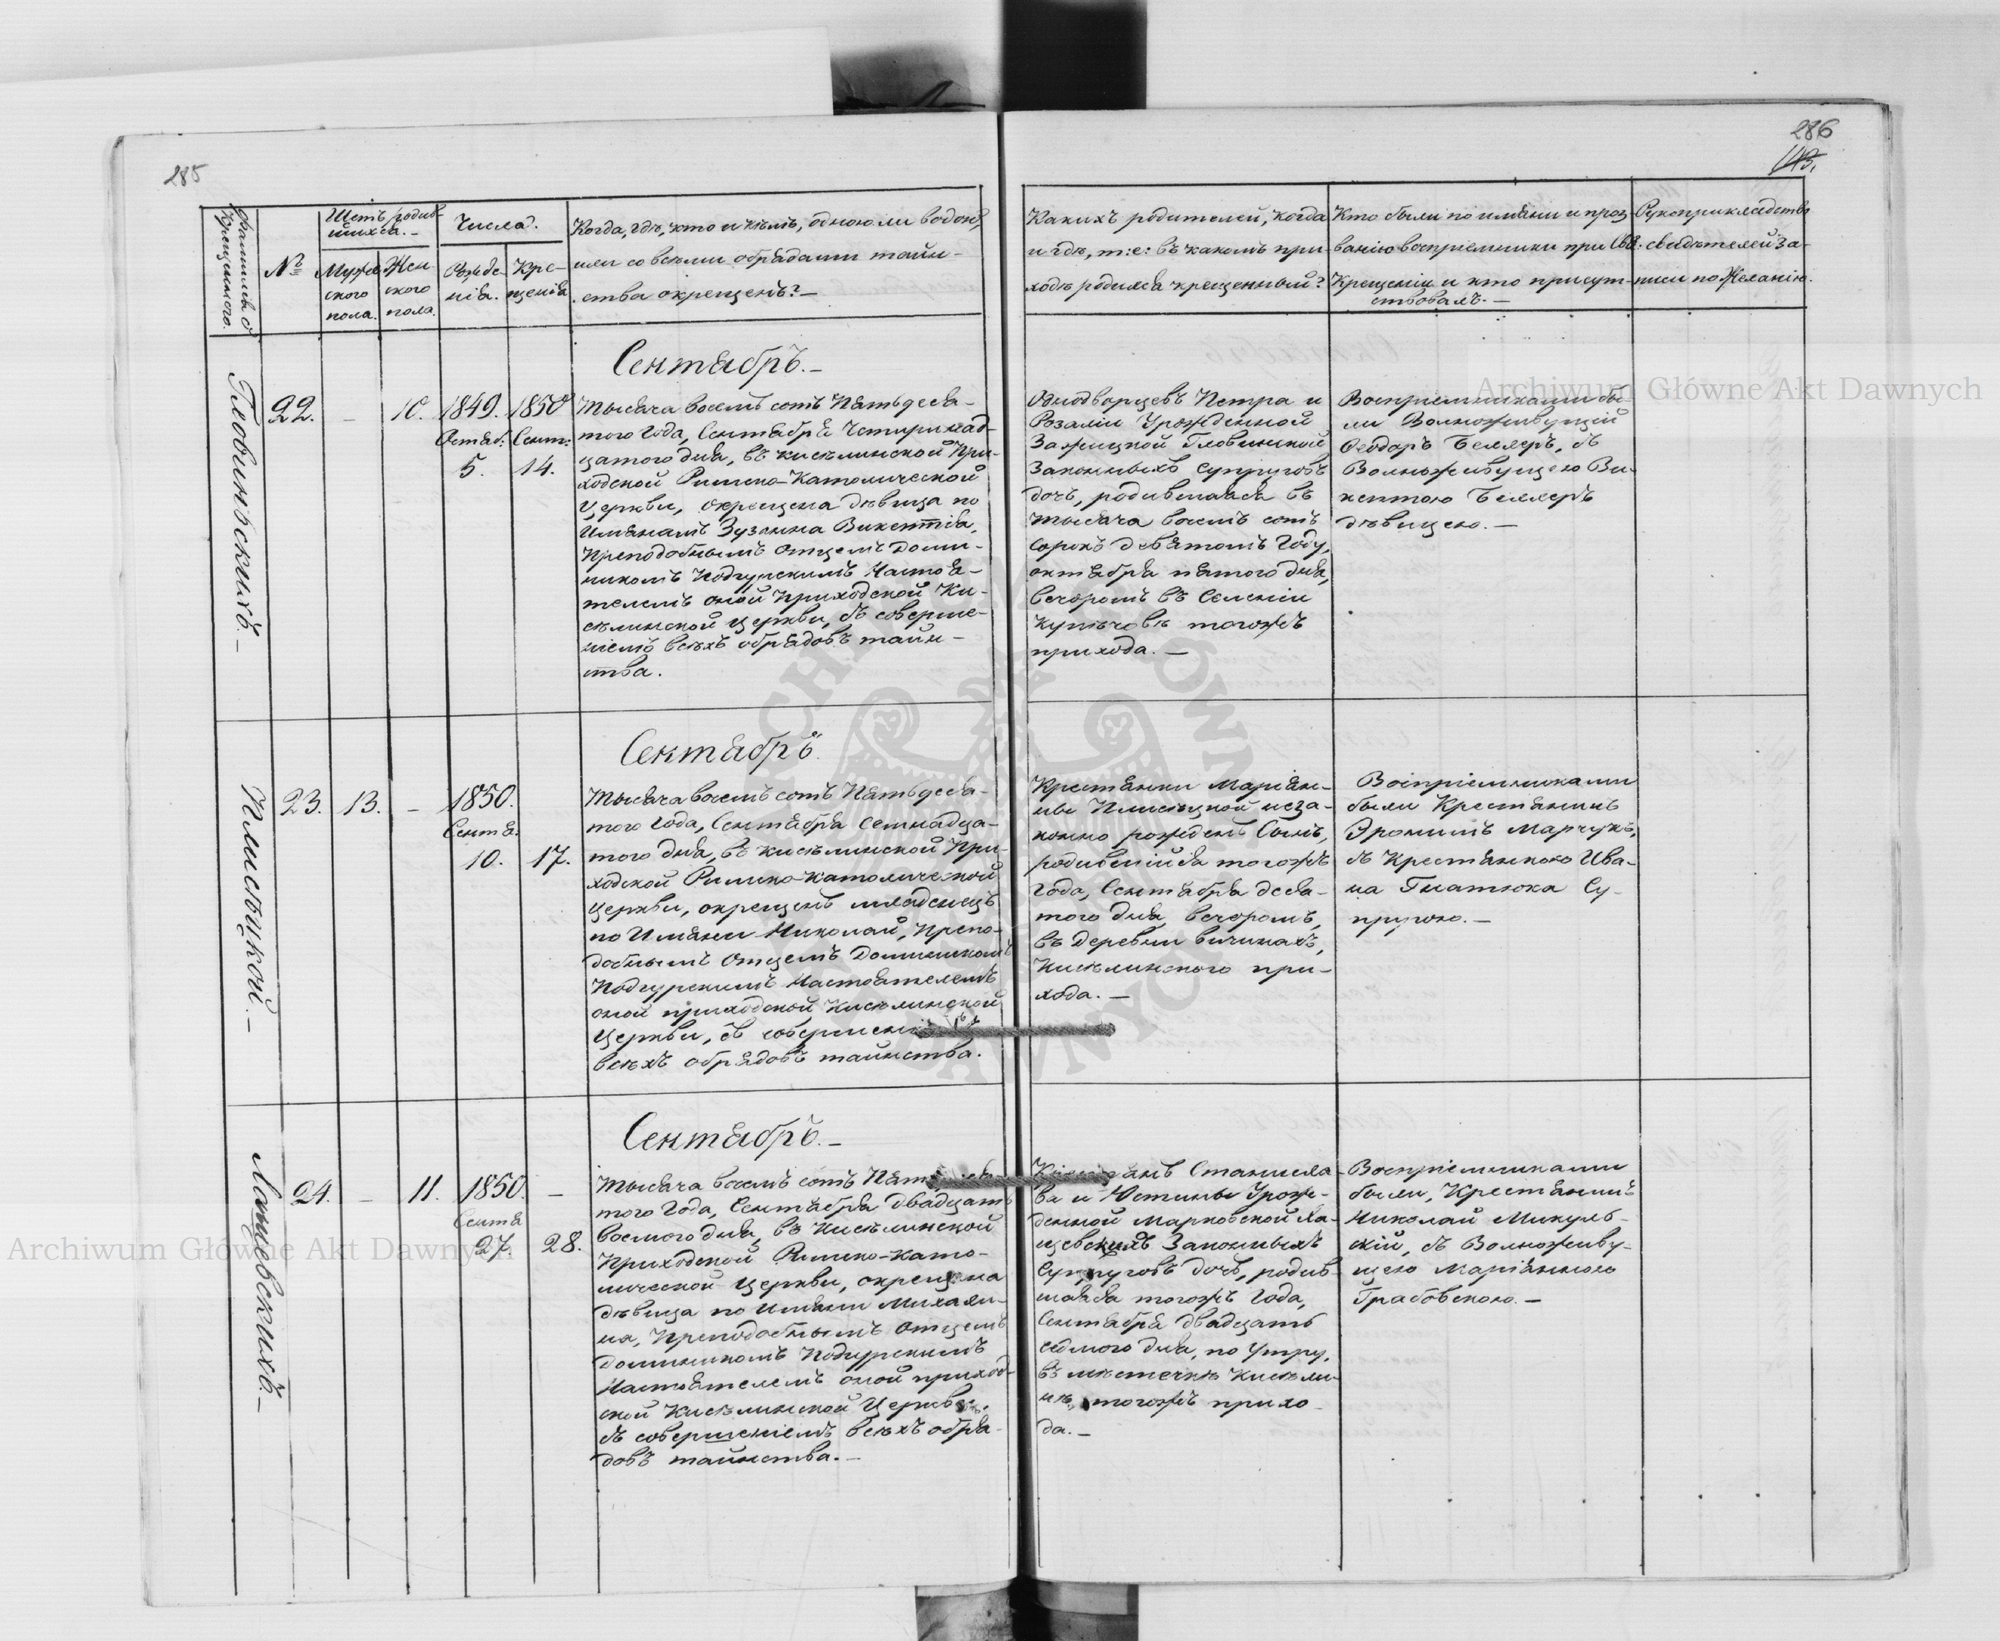 285
286
113.
Фамилія
Крещеннаго.
№
Щетъ родив-
шихся.
Мужескаго
пола.
Жен
ского
пола.
Числа.
Рожде-
нія.
Кре-
щенія
Когда, гдѣ, кто и кѣмъ, одною ли водою,
или со всѣми обрядами таин-
ства окрещенъ?—
Какихъ родителей, когда
и гдѣ, т:е: въ какомъ при-
ходѣ родился крещенный?
Кто были по имяни и проз
ванію воспріемники при Св:
Крещеніи и кто присут-
ствовалъ.—
Рукоприкладство
свидѣтелей за-
писи по желанію.
Гловинскихъ.—
22.
—
10.
1849.
Октяб:
5.
1850
Сент:
14.
Сентябрь.—
Тысяча восемь сотъ Пятьдеся-
того Года, Сентября Четырнад-
цатого дня, въ Киселинской При-
ходской Римско-Католической
Церкви, окрещена дѣвица по
Имянамъ Зузанна Викентія,
Преподобнымъ Отцемъ Доми-
никомъ Подгурскимъ Настоя-
телемъ оной Приходской Ки-
селинской Церкви, съ соверше-
ніемъ всѣхъ обрядовъ таин-
ства.
Однодворцевъ Петра и
Розаліи Урожденной
Зажицкой Гловинской
Законныхъ Супруговъ
дочь, родившаяся въ
тысяча восемь сотъ
сорокъ девятомъ Году,
октября пятого дня,
вечоромъ въ Селеніи
Купѣчовѣ тогожъ
прихода.—
Воспріемниками бы-
ли Вольноживущій
Феодоръ Беллеръ, съ
Вольноживущею Ви-
кентою Беллеръ
дѣвицею.—
Плисѣцкой.—
23.
13.
—
1850.
Сентя.
10.
17.
Сентябрь.
Тысяча восемь сотъ Пятьдеся-
того Года, Сентября семнадца-
того дня, въ Киселинской При-
ходской Римско-Католической
Церкви, окрещенъ младенецъ
по Имяни Николай, Препо-
добнымъ Отцемъ Доминикомъ
Подгурскимъ Настоятелемъ
оной приходской Киселинской
Церкви, съ совершені
всѣхъ обрядовъ таинства.
Крестянки Маріан-
ны Плисѣцкой неза-
конно рожденъ Сынъ,
родившійся тогожъ
Года, Сентября деся-
того дня, вечоромъ,
въ деревни Вичинахъ,
Киселинского при-
хода.—
Воспріемниками
были Крестянинъ
Эронимъ Марчукъ,
съ Крестянкою Ива-
на Гнатюка Су-
пругою.—
Лацевскихъ.—
24.
—
11.
1850.
Сентя
27.
—
28.
Сентябрь.—
Тысяча восемь сотъ Пятьдеся-
того Года, Сентября двадцать
восмого дня, въ Киселинской
Приходской Римско-Като-
лической Церкви, окрещена
дѣвица по Имяни Михали-
на, Преподобнымъ Отцемъ
Доминикомъ Подгурскимъ
Настоятелемъ оной приход-
ской Киселинской Церкви.
съ совершеніемъ всѣхъ обря-
довъ таинства.—
Станисла-
ва и Юстины Урож-
денной Марковской Ла-
цевскихъ Законныхъ
Супруговъ дочь, родив-
шаяся тогожъ Года,
Сентября двадцать
седмого дня, по Утру,
въ местечкѣ Кисели-
нѣ, тогожъ прихо
да.—
Воспріемниками
были, Крестянинъ
Николай Микуль-
скій, съ Вольноживу-
щею Маріанною
Грабовскою.—
Archiwum Główne Akt Dawnych
Archiwum Główne Akt Dawnych